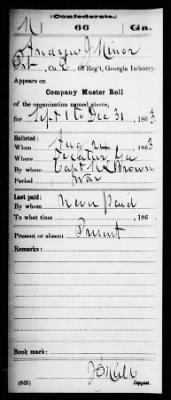 (Confederate.)
M 66 Ga.
Andrew J Minor
Pvt, Co. , 66 Reg't, Georgia Infantry.
Appears on
Company Muster Roll
of the organization named above,
for Sept 1 to Dec 31, 1863
Enlisted:
When Aug , 1863
Where Decatur Ga
By whom Capt Brown
Period War
Last paid:
By whom Never paid
To what time , 186
Present or absent Present
Remarks:
Book mark:
(642) Copyist.